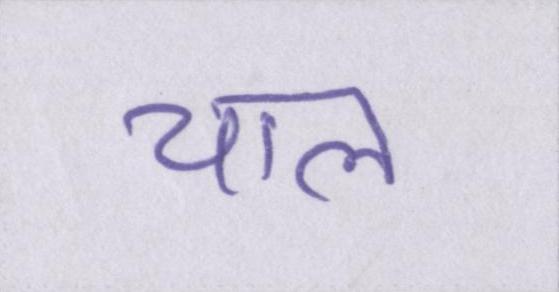 चाल